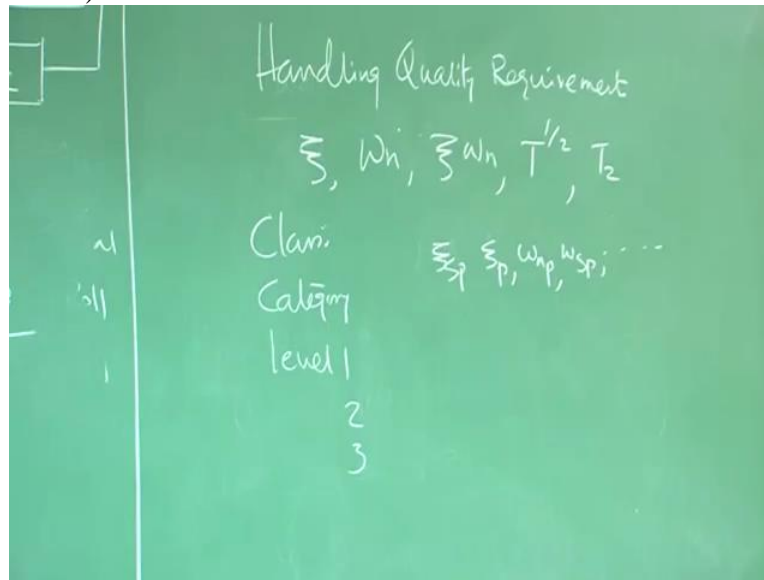 Handling Quality Requirement
ξ, ωn, ξωn, T^1/2, T2
Class. ξsp ξp, ωnp, ωsp, ....
Category
level 1
2
3